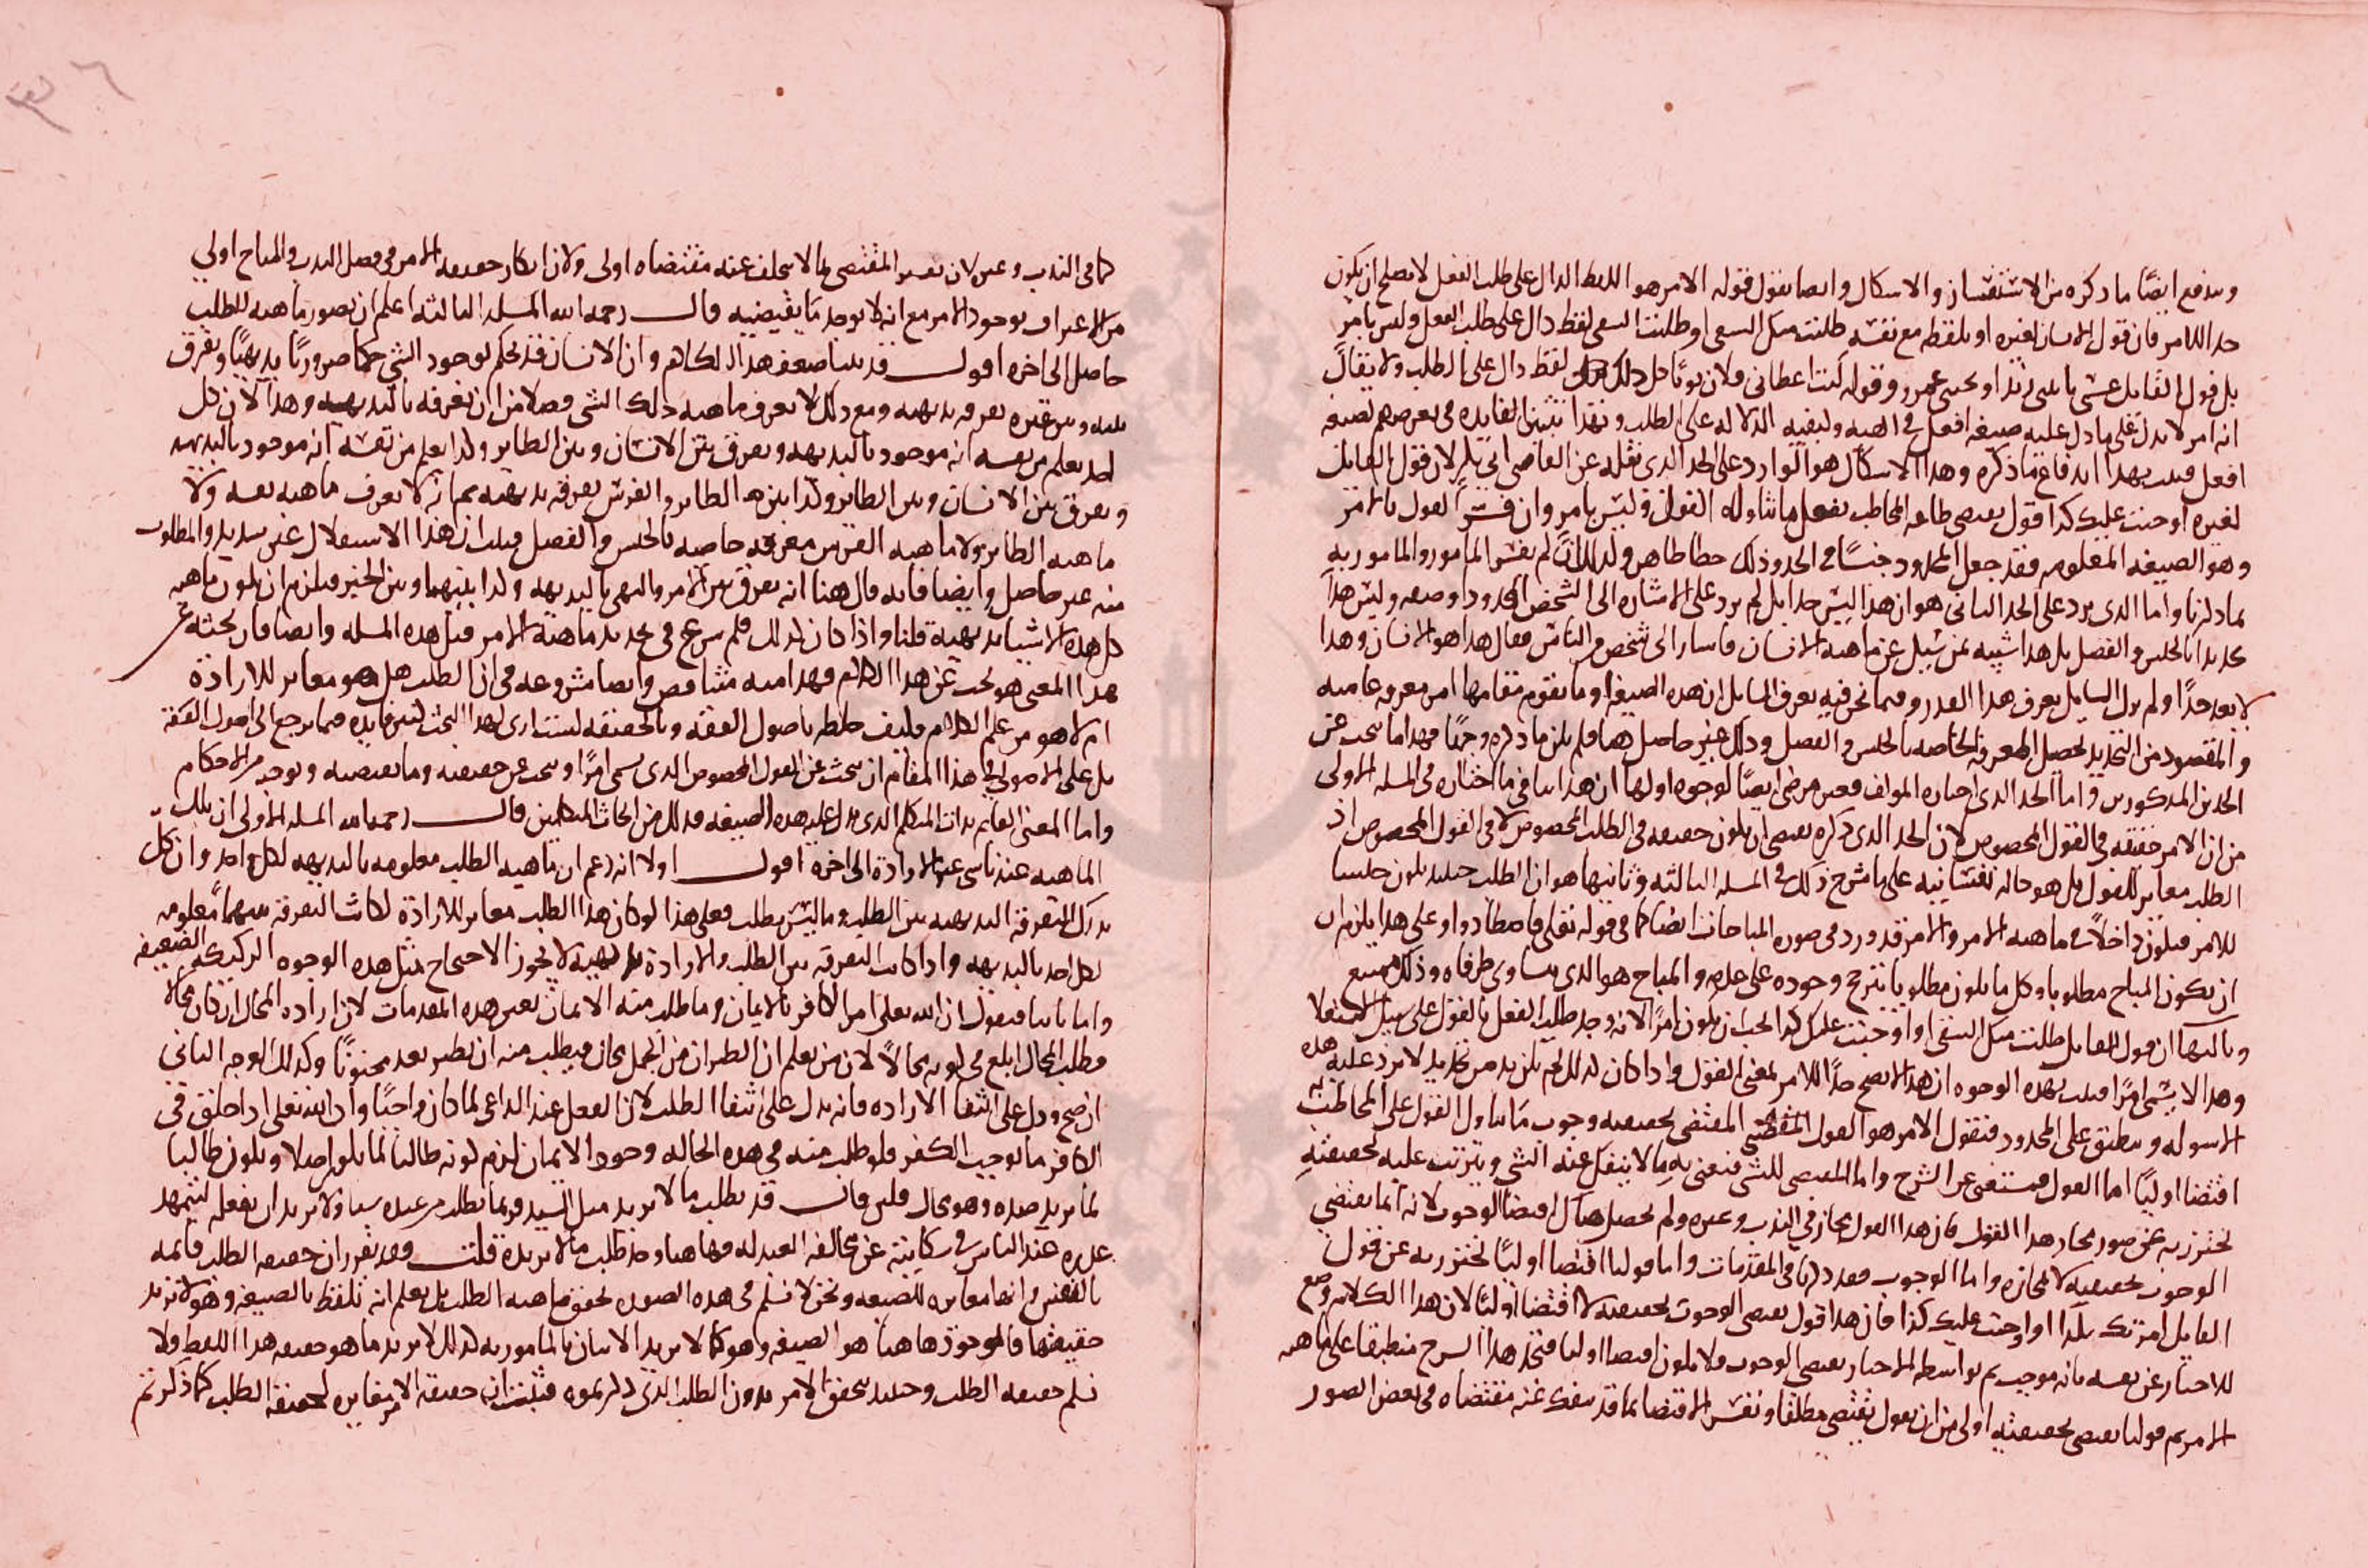 ويندفع ايضًا ما ذكره من الاستفسار والاشكال وايضا نقول قوله الامر هو اللفظ الدال على طلب الفعل لا يصلح ان يكون
حد اللامر فان قول الانسان لغيره او تلفظه مع نفسه طلبت منك السعى او طلبت السعى لفظ دال على طلب الفعل وليس بامر
بل قول القايل عسى ياتينى زيد او يجيى عمرو وقوله ليت اعطانى فلان ثوبًا كل ذلك لفظ دال على الطلب ولا يقال
انه امر لا يدل على ما دل عليه صيغه افعل فى الهيه وكيفيه الدلاله على الطلب وبهذا تبين الفايده فى تعرضهم لصيغه
افعل قلت بهذا اندفاع ما ذكره وهذا الاشكال هو الوارد على الحد الذى نقله عن القاضى ابى بكر لان قول القايل
لغيره اوجبت عليك كذا قول يقتضى طاعه المخاطب بفعل ما تناوله القول وليس بامر وان فسر القول بالامر
وهو الصيغه المعلومه فقد جعل المحدود جنسًا فى الحد وذلك خطا ظاهر ولذلك لم يفسر المامور والمامور به
بما ذكرنا واما الذى يرد على الحد الثانى هو ان هذا ليس حدا بل لم يزد على الاشاره الى الشخص المحدود او صنعه وليس هذا
تحديدا بالجنس والفصل بل هذا شبيه بمن سيل عن ماهيه الانسان فاشار الى شخص من الناس فقال هذا هو الانسان وهذا
لا يعد حدًا ولم يزل السايل يعرف هذا القدر وفيما نحن فيه يعرف السايل ان هذه الصيغه او ما يقوم مقامها امر معرفه عاميه
والمقصود من التحديد تحصيل المعرفه الخاصه بالجنس والفصل وذلك غير حاصل ههنا فلم يكن ما ذكره وجهًا فهذا ما يبحث عن
الحدين المذكورين واما الحد الذى اختاره المولف فغير مرضى ايضًا لوجوه اولها ان هذا ينافى ما اختاره فى المسله الاولى
من ان الامر حقيقه فى القول المخصوص لان الحد الذى ذكره يقتضى ان يكون حقيقه فى الطلب المخصوص لا فى القول المخصوص اذ
الطلب مغاير للقول بل هو حاله نفسانيه على ما شرح ذلك فى المسله الثالثه وثانيها هو ان الطلب حينيذ يكون جنسا
للامر فيكون داخلًا فى ماهيه الامر والامر قد ورد فى صوره المباحات ايضًا كما فى قوله تعالى فاصطادوا وعلى هذا يلزم ان
ان يكون المباح مطلوبا وكل ما يكون مطلوبا يترجح وجوده على عدمه والمباح هو الذى يتساوى طرفاه وذلك ممتنع
وثالثها ان قول القايل طلبت منك السقى او اوجبت عليك كذا يجب ان يكون امرًا لانه وجد طلب الفعل بالقول على سبيل الاستعلا
وهذا لا يسمى امرًا فثبت بهذه الوجوه ان هذا لا يصح حدًا للامر بمعنى القول واذا كان كذلك لم يكن بد من تحديد لا يرد عليه هذه
الاسوله وينطبق على المحدود فنقول الامر هو القول المقتضى بحقيقته وجوب ما تناوله القول على المخاطب به
اقتضا اوليًا اما القول فمستغنى عن الشرح واما المقتضى للشى فنعنى به ما لا ينفك عنه الشى ويترتب عليه لحقيقته
نحترز به عن صور مجاز هذا القول فان هذا القول مجاز فى الندب وغيره ولم يحصل هناك اقتضا الوجوب لانه انما يقتضى
الوجوب بحقيقته لا بمجازه واما الوجوب فقد ذكرنا فى المقدمات واما قولنا اقتضا اوليًا نحترز به عن قول
القايل امرتك بكذا او اوجبت عليك كذا فان هذا قول يقتضى الوجوب بحقيقته لا اقتضا اوليًا لان هذا الكلام وضع
للاخبار عن نفسه بانه موجب ثم بواسطه الاخبار يقتضى الوجوب فلا يكون اقتضا اوليا فنجد هذا الشرح منطبقا على ماهيه
الامر ثم قولنا يقتضى بحقيقته اولى من ان يقول يقتضى مطلقا ونفس الاقتضا بما قد ينفك عنه مقتضاه فى بعض الصور
كما فى الندب وغيره لان تفسير المقتضى بما لا يتخلف عنه مقتضاه اولى ولان انكار حقيقه الامر فى فصل الندب والمباح اولى
من الاعتراف بوجود الامر مع انه لا يوجد ما يقتضيه قال رحمه الله المسله الثالثه اعلم ان تصور ماهيه الطلب
حاصل الى اخره اقول قد بينا ضعف هذا الكلام وان الانسان قد يحكم بوجود الشى حكما ضروريًا بديهيًا ويفرق
بينه وبين غيره تعرفه بديهيه ومع ذلك لا يعرف ماهيه ذلك الشى فضلا من ان تعرفه بالبديهيه وهذا لان كل
احد يعلم من نفسه انه موجود بالبديهه ويفرق بين الانسان وبين الطاير وكذا يعلم من نفسه انه موجود بالبديهه
ويفرق بين الانسان وبين الطاير وكذا بين الطاير والفرس تفرقه بديهيه مع انه لا يعرف ماهيه نفسه ولا
ماهيه الطاير ولا ماهيه الفرس معرفه خاصه بالجنس والفصل فثبت ان هذا الاستدلال غير سديد والمطلوب
منه غير حاصل وايضا فانه قال هنا انه يفرق بين الامر والنهى بالبديهه وكذا بينهما وبين الخبر فيلزم ان يكون ماهيه
كل هذه الاشيا بديهية قلنا واذا كان كذلك فلم شرع فى تحديد ماهية الامر قبل هذه المسله وايضا فان بحثه عن
هذا المعنى هو بحث عن هذا الكلام فهذا منه متناقض وايضا مشروعه فى ان الطلب هل هو مغاير للارادة
ام لا هو من علم الكلام فكيف خلطه باصول الفقه وبالحقيقه لست ارى لهذا البحث كثير فايده فيما يرجع الى اصول الفقه
بل على الاصولى فى هذا المقام ان يبحث عن القول المخصوص الذى يسمى امرًا ويبحث عن حقيقته وما يقتضيه ويوجبه من الاحكام
واما المعنى القايم بذات المتكلم الذى يدل عليه هذه الصيغه فذلك من ابحاث المتكلمين قال رحمه الله المسله الاولى ان تلك
الماهيه عندنا شى غير الارادة الى اخره اقول اولا انه زعم ان ماهيه الطلب معلومه بالبديهه لكل احد وان كل
يدرك التفرقه البديهيه بين الطلب وما ليس بطلب فعلى هذا لو كان هذا الطلب مغاير للارادة لكانت التفرقه بينهما معلومه
لكل احد بالبديهه واذا كانت التفرقه بين الطلب والارادة بديهية لا يجوز الاحتجاج بمثل هذه الوجوه الركيكه الضعيفه
واما ثانيا فنقول ان الله تعلى امر الكافر بالايمان وما طلب منه الايمان بعين هذه المقدمات لان اراده المحال ان كان محالا
فطلب المحال ابلغ فى كونه محالًا لان من يعلم ان الطيران من الجمل محال فيطلب منه ان يطير يعد مجنونًا وكذلك الوجه الثانى
ان صح ودل على انتفا الاراده فانه يدل على انتفا الطلب لان الفعل عند الداعى لما كان واجبًا وان الله تعلى اذا خلق فى
الكافر ما يوجب الكفر فلو طلب منه فى هذه الحاله وجود الايمان لزم كونه طالبا لما يكون اصلا ويكون طالبا
لما يريد ضده وهو محال فلين قال قد يطلب ما لا يريد مثل السيد فربما يطلب من عبده شيا ولا يريد ان يفعله ليتمهد
عذره عند الناس فى شكايته عن مخالفه العبد له فهاهنا وجد طلب ما لا يريده قلت وقد تقرر ان حقيقه الطلب قايمه
بالنفس وانها مغايره للصيغه ونحن لا نسلم فى هذه الصوره تحقق ماهيه الطلب بل يعلم انه تلفظ بالصيغه وهو لا يريد
حقيقتها فالموجود هاهنا هو الصيغه وهو كما لا يريد الاتيان بالمامور به كذلك لا يريد ما هو حقيقه هذا اللفظ فلا
نسلم حقيقه الطلب وحينيذ يتحقق الامر بدون الطلب الذى ذكرتموه فثبت ان حقيقه الامر مغايره لحقيقه الطلب كما ذكرتم